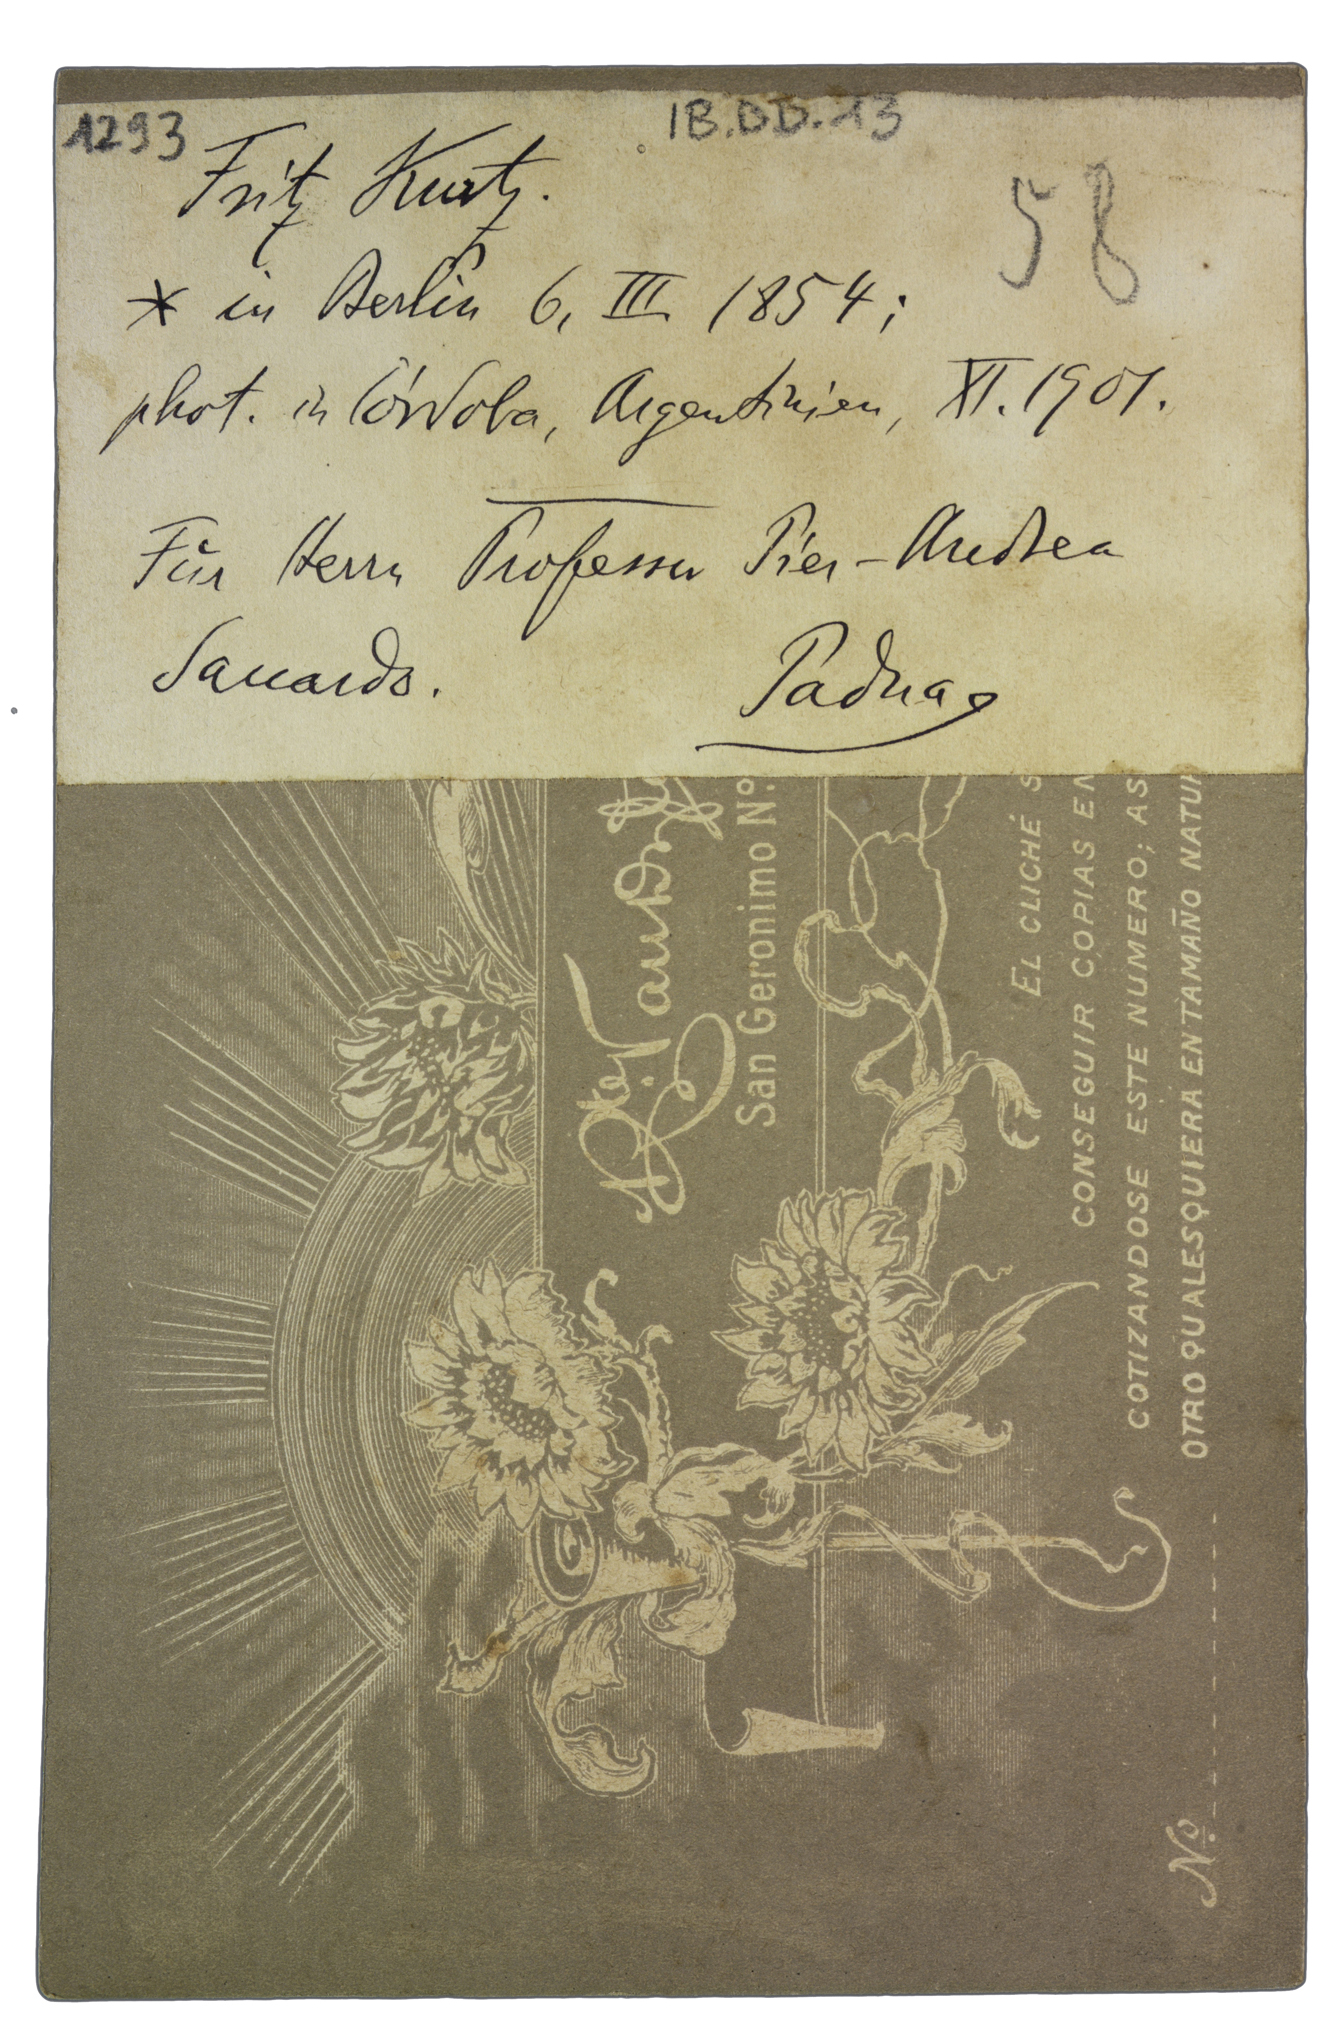 1293
IB.DD.13
58
Fritz Kurtz.
* in Berlin 6, III 1854;
phot. in Córdoba, Argentinien, XI. 1901.
Für Herrn Professor Pier-Andrea
Saccardo. Padua
San Geronimo Nº.
EL CLICHÉ S
CONSEGUIR COPIAS EN
COTIZANDOSE ESTE NUMERO; AS
OTRO QUALESQUIERA EN TAMAÑO NATUR
Nº